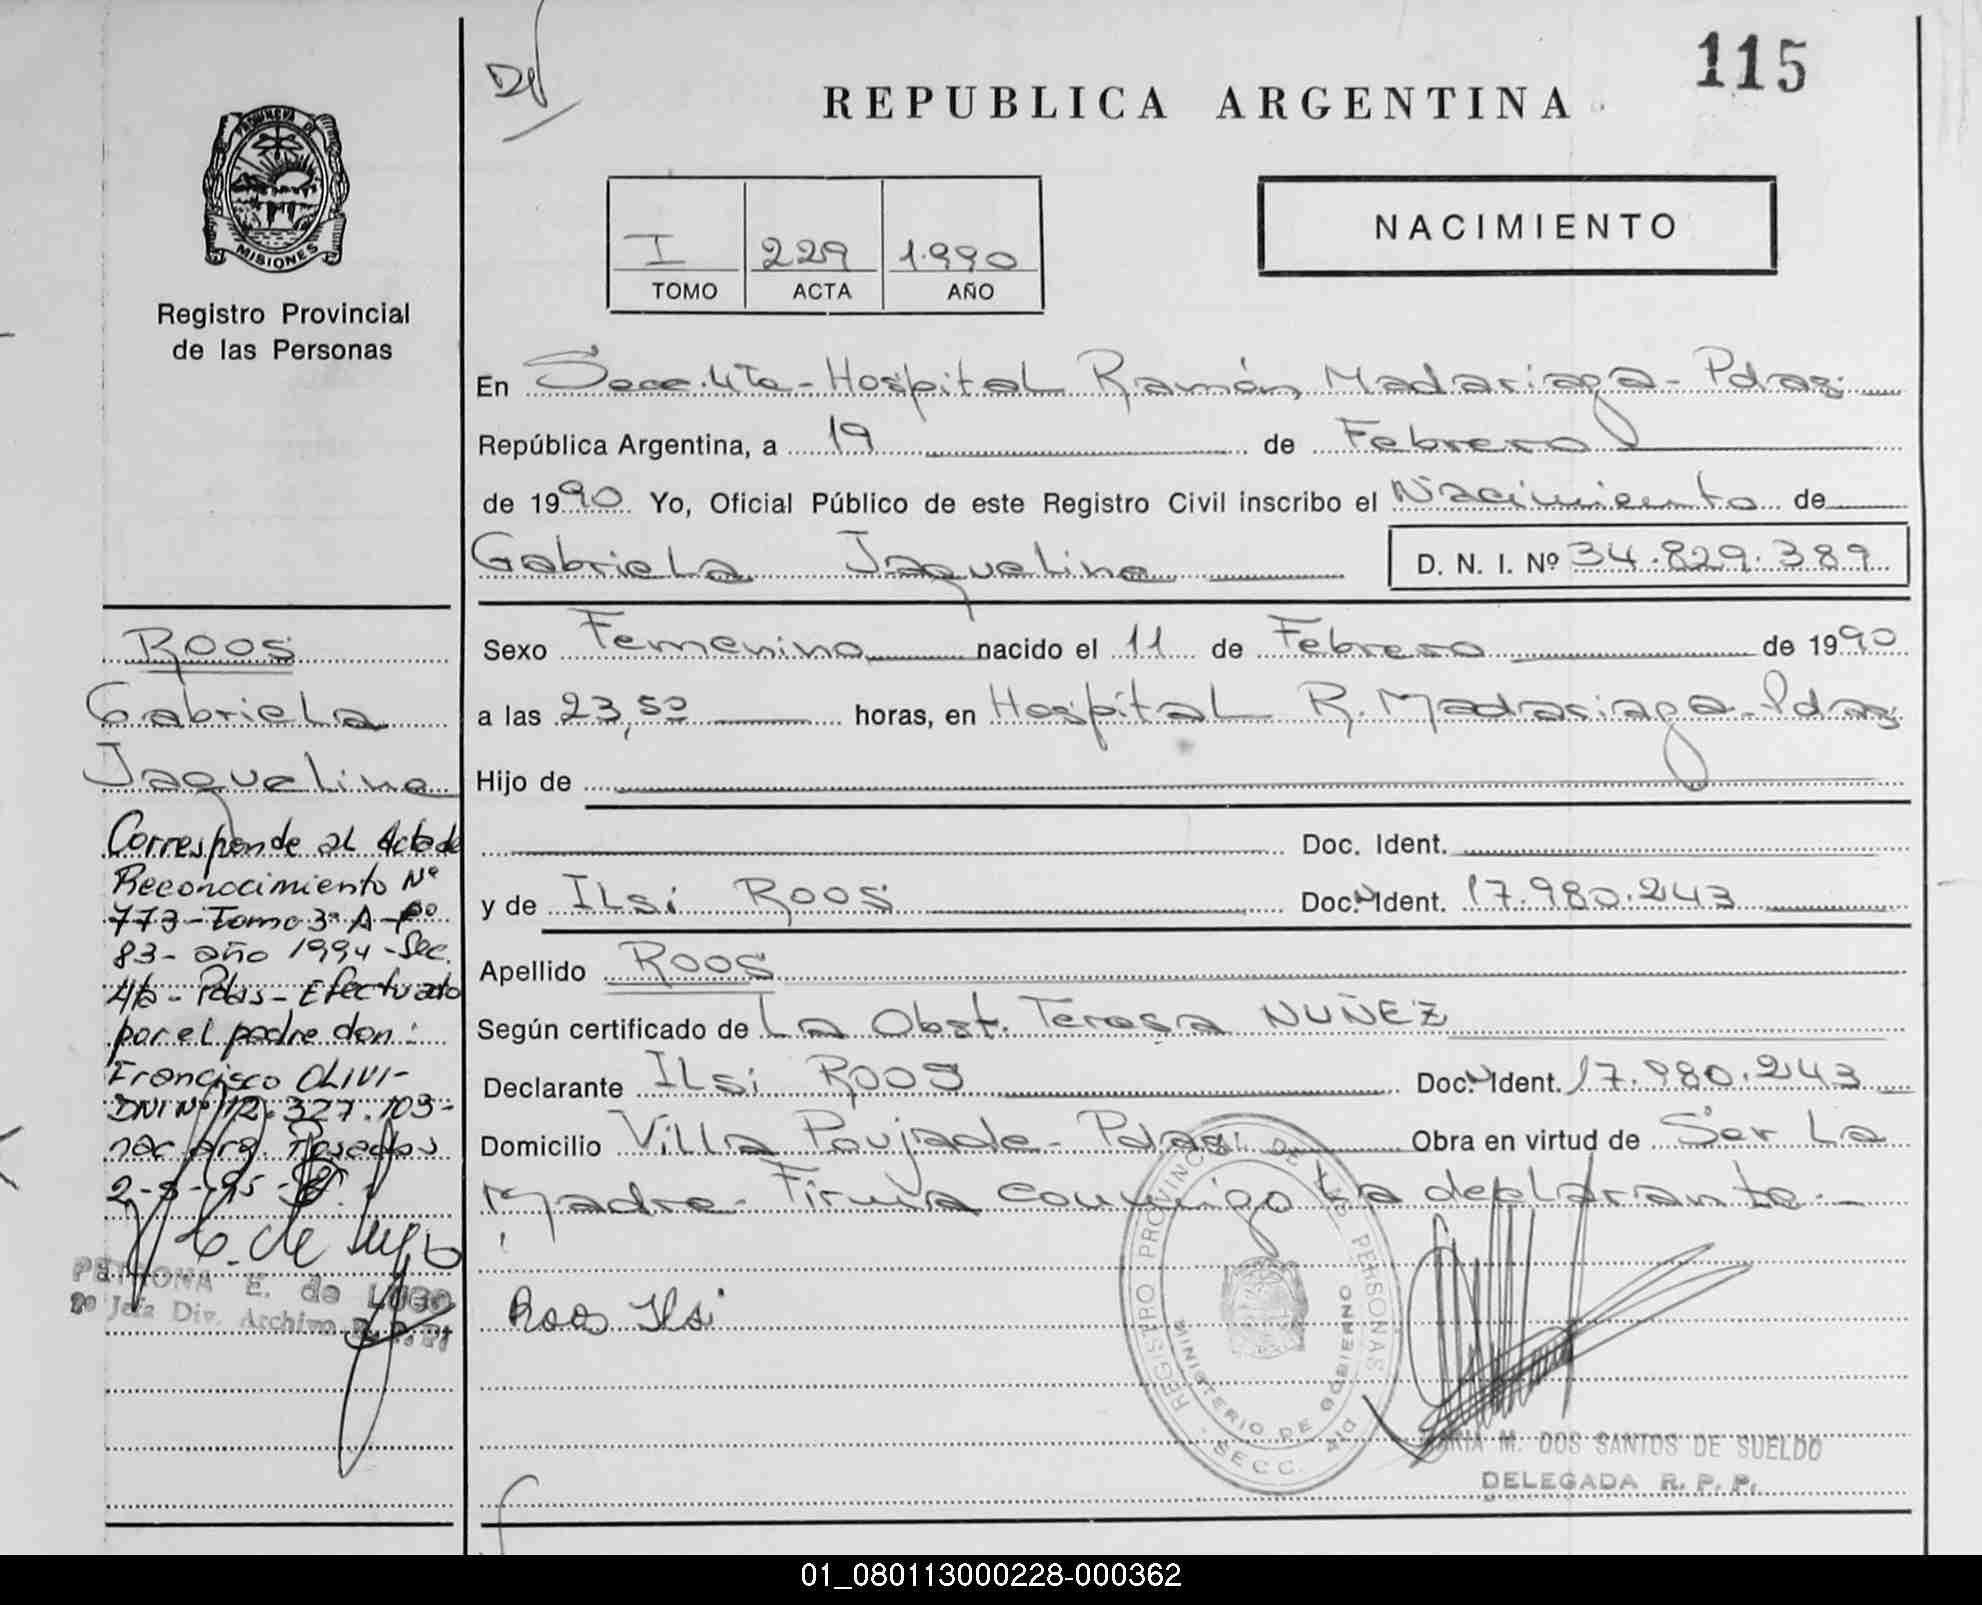 115
REPUBLICA ARGENTINA
PROVINCIA DE
MISIONES
Registro Provincial
de las Personas
I 229 1.990
TOMO ACTA AÑO
NACIMIENTO
En Secc. 4ta - Hospital Ramón Madariaga - Pdas.
República Argentina, a 19 de Febrero
de 1990 Yo, Oficial Público de este Registro Civil inscribo el Nacimiento de
Gabriela Jaqueline D. N. I. Nº 34.829.389
Sexo Femenino nacido el 11 de Febrero de 1990
a las 23,50 horas, en Hospital R. Madariaga - Pdas
Hijo de
Doc. Ident.
y de ILsi ROOS Doc. Ident. 17.980.243
Apellido ROOS
Según certificado de La Obst. Teresa NUÑEZ
Declarante ILsi ROOS Doc. Ident. 17.980.243
Domicilio Villa Poujade - Pdas. Obra en virtud de Ser La
Madre - Firma conmigo La declarante. -
Roos Ilsi
REGISTRO PROVINCIAL DE LAS PERSONAS
MINISTERIO DE GOBIERNO
SECC. 4ta
MARIA M. DOS SANTOS DE SUELDO
DELEGADA R. P. P.
ROOS
Gabriela
Jaqueline
Corresponde al Acta de
Reconocimiento Nº
773 - Tomo 3º A - Fº
83 - año 1994 - Sec.
4ta - Pdas - Efectuado
por el padre don:
Francisco OLIVI -
DNI Nº 12.327.103 -
nac. arg. Posadas
2-5-95 -
E. de Lugo
PETRONA E. de LUGO
2º Jefa Div. Archivo R. P. P.
01_080113000228-000362